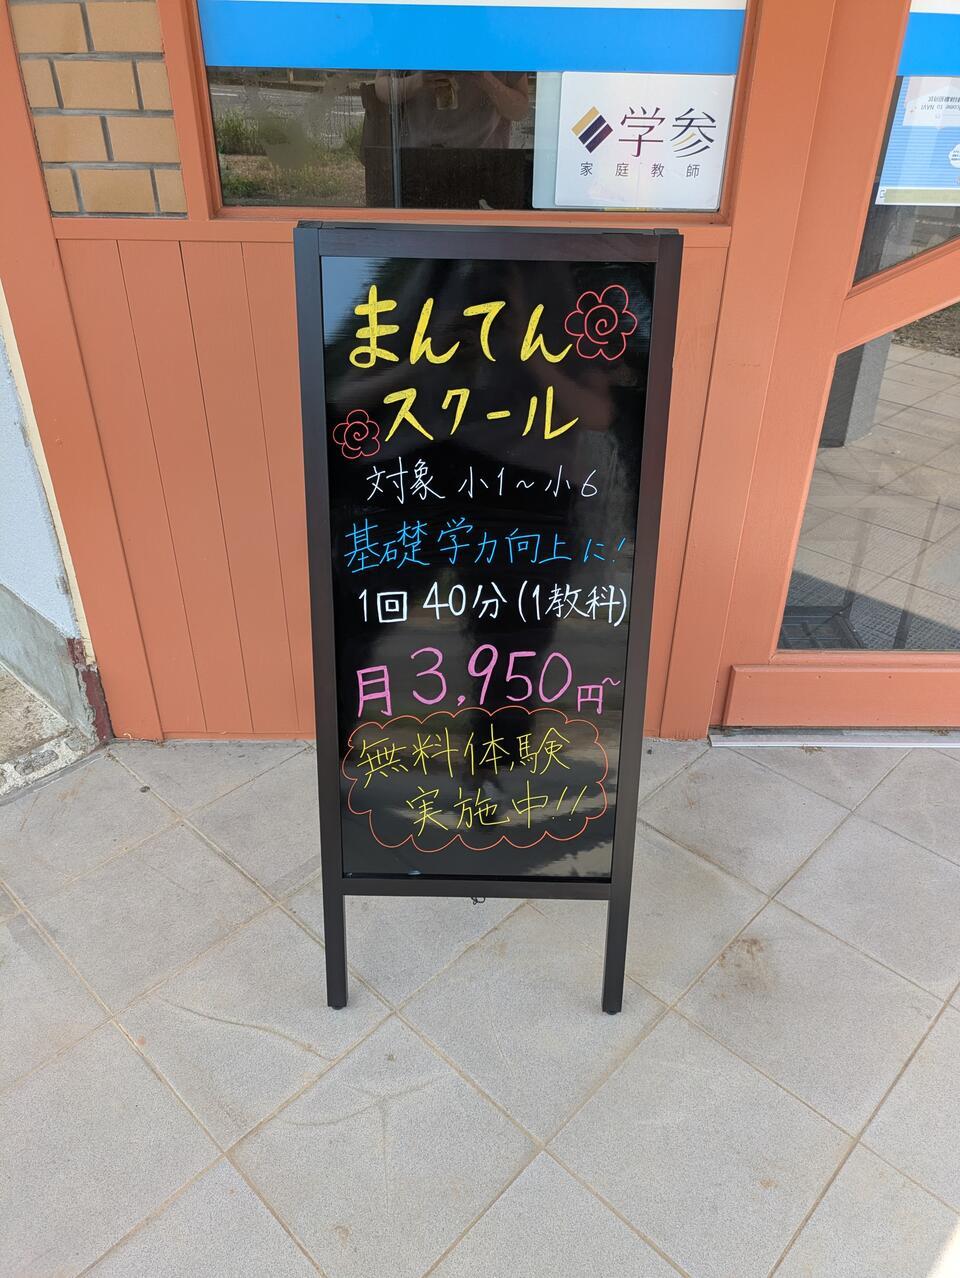 学参
家庭教師
まんてん
スクール
対象 小1～小6
基礎学力向上に!
1回 40分(1教科)
月3,950円~
無料体験
実施中!!